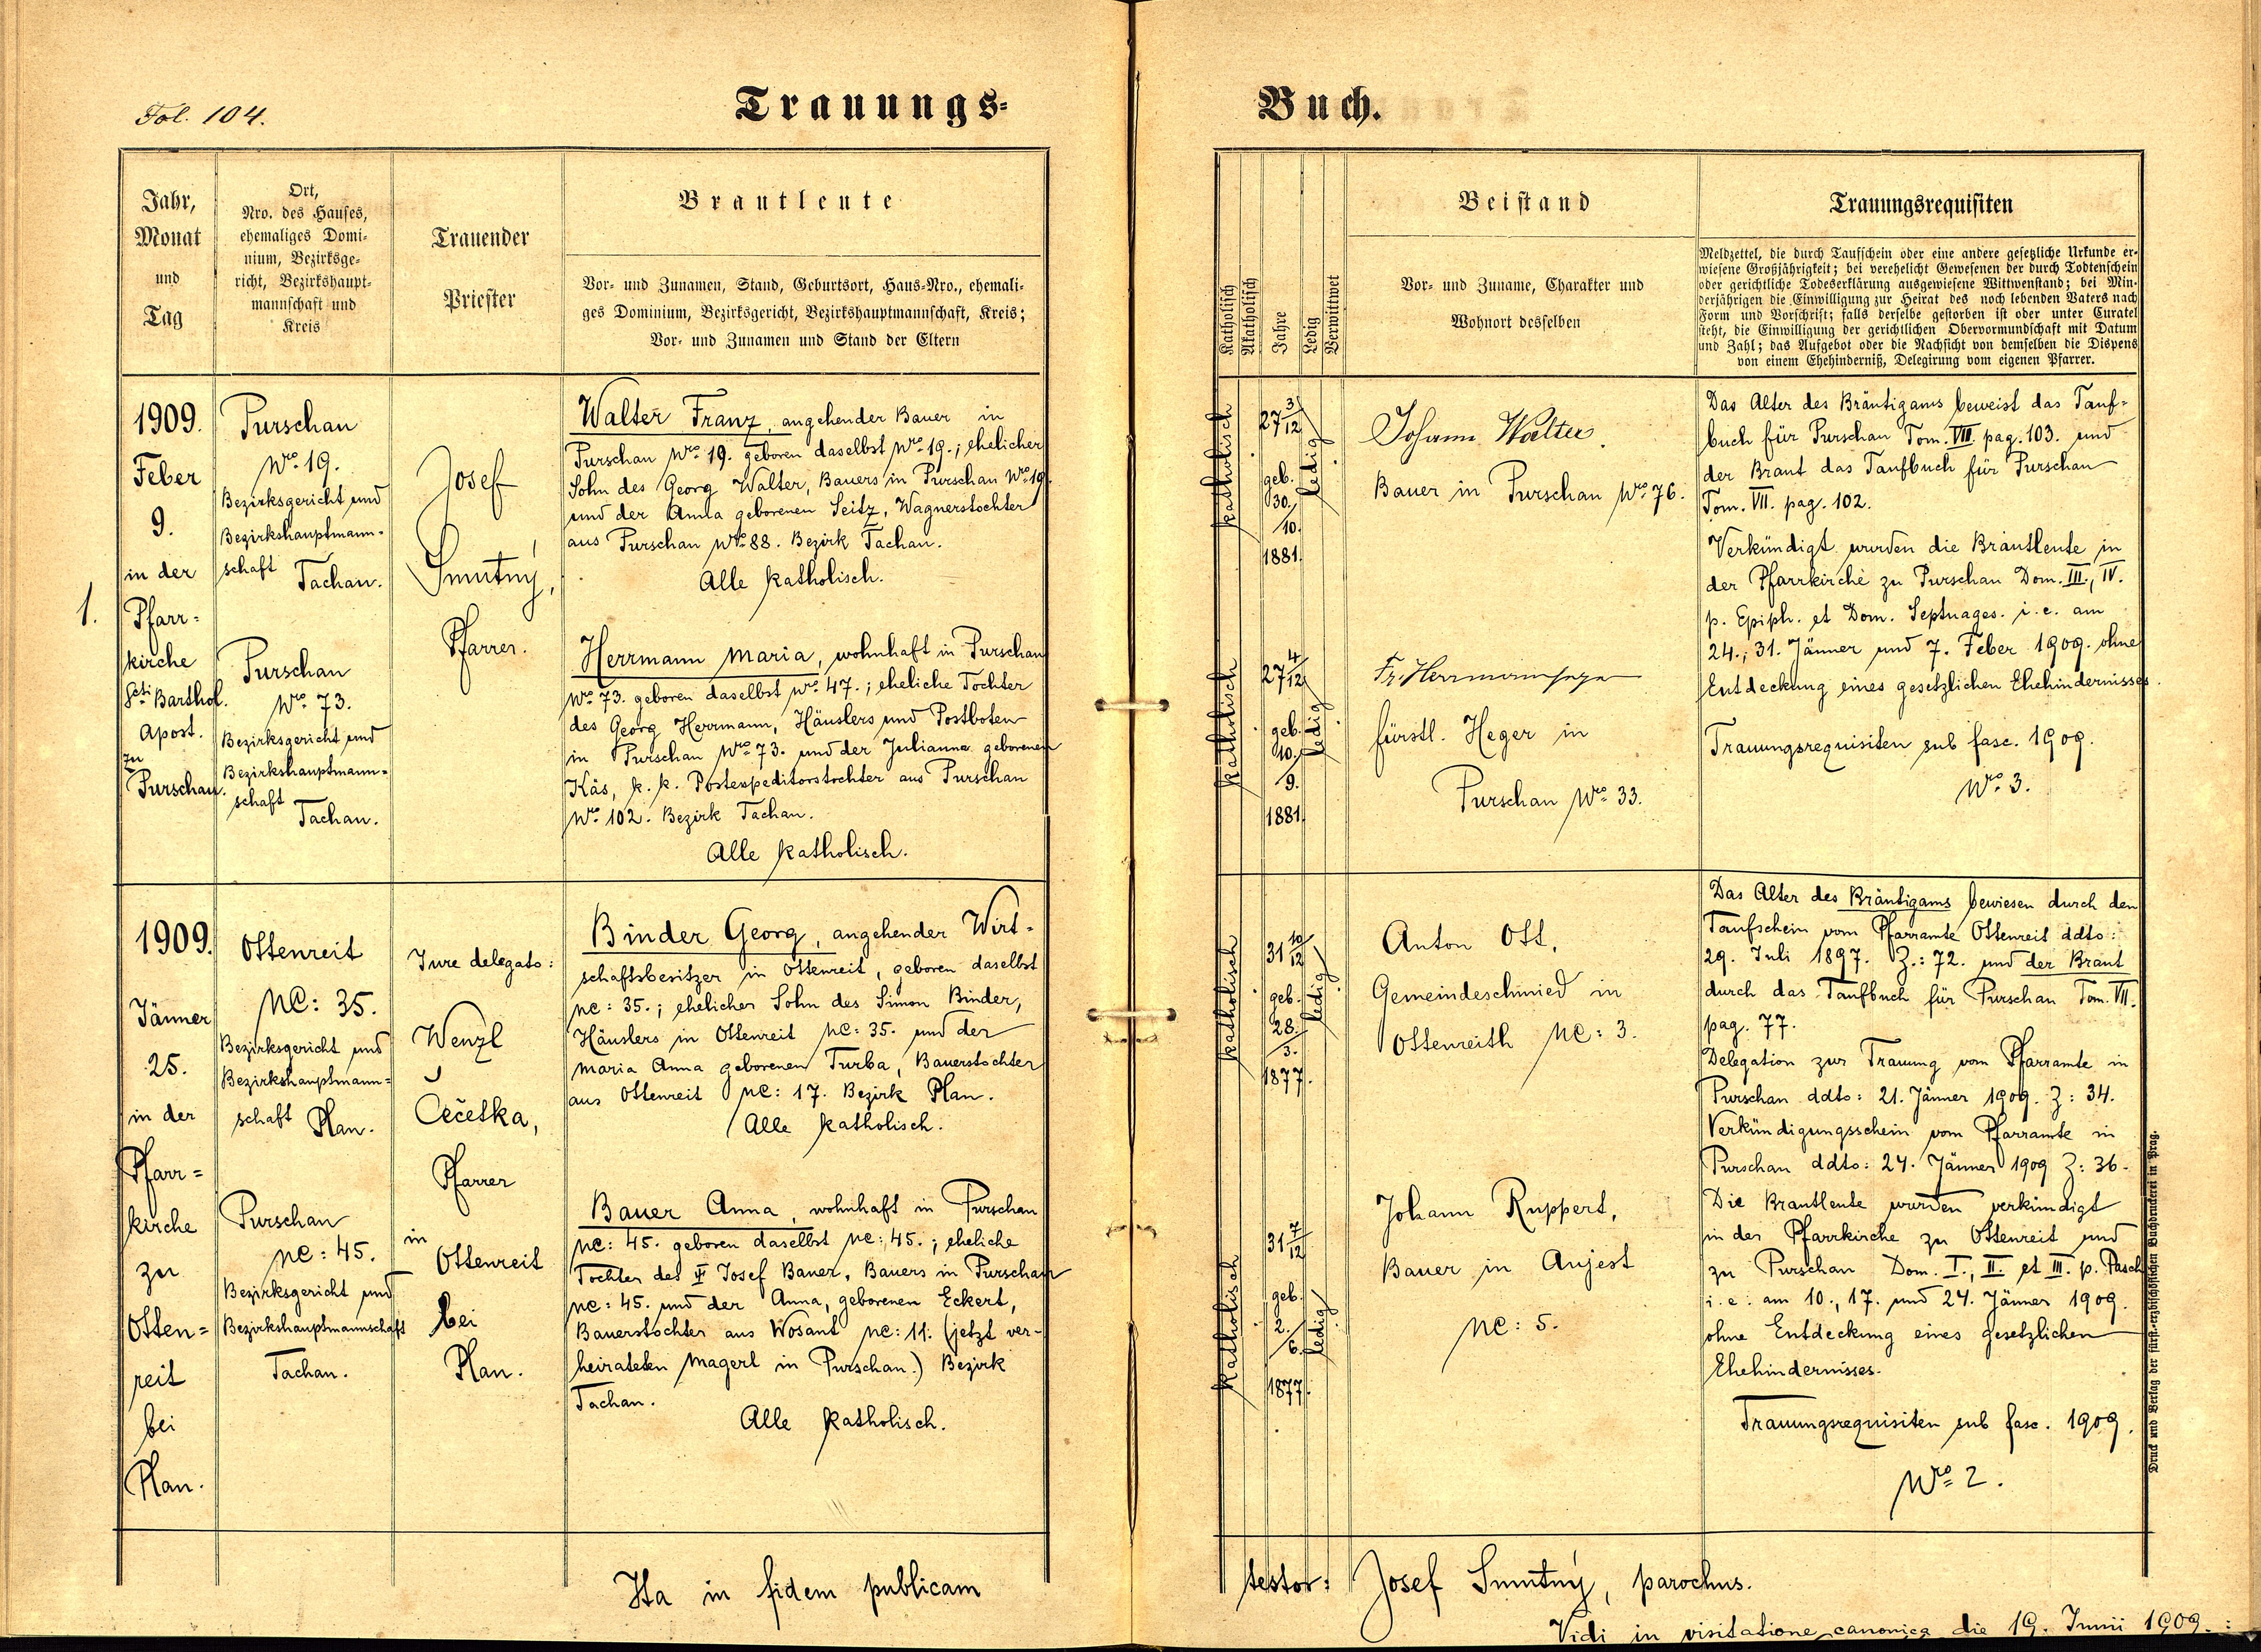 Fol. 104.
Trauungs-
Buch.
Jahr,
Monat
und
Tag
Ort,
Nro. des Hauses,
ehemaliges Domi-
nium, Bezirksge-
richt, Bezirkshaupt-
mannschaft und
Kreis
Trauender
Priester
Brautleute
Vor- und Zunamen, Stand, Geburtsort, Haus-Nro., ehemali-
ges Dominium, Bezirksgericht, Bezirkshauptmannschaft, Kreis;
Vor- und Zunamen und Stand der Eltern
Katholisch
Akatholisch
Jahre
Ledig
Verwittwet
Beistand
Vor- und Zuname, Charakter und
Wohnort desselben
Trauungsrequisiten
Meldzettel, die durch Taufschein oder eine andere gesetzliche Urkunde er-
wiesene Großjährigkeit; bei verehelicht Gewesenen der durch Todtenschein
oder gerichtliche Todeserklärung ausgewiesene Wittwenstand; bei Min-
derjährigen die Einwilligung zur Heirat des noch lebenden Vaters nach
Form und Vorschrift; falls derselbe gestorben ist oder unter Curatel
steht, die Einwilligung der gerichtlichen Obervormundschaft mit Datum
und Zahl; das Aufgebot oder die Nachsicht von demselben die Dispens
von einem Ehehinderniß, Delegirung vom eigenen Pfarrer.
1.
1909.
Feber
9.
in der
Pfarr-
kirche
Scti Barthol.
Apost.
zu
Purschau.
Purschau
Nro 19.
Bezirksgericht und
Bezirkshauptmann-
schaft Tachau.
Purschau
Nro 73.
Bezirksgericht und
Bezirkshauptmann-
schaft
Tachau.
Josef
Smutný,
Pfarrer.
Walter Franz, angehender Bauer in
Purschau Nro 19. geboren daselbst Nro 19.; ehelicher
Sohn des Georg Walter, Bauers in Purschau Nro 19.
und der Anna geborenen Seitz, Wagnerstochter
aus Purschau Nro 88. Bezirk Tachau.
Alle katholisch.
Herrmann Maria, wohnhaft in Purschau
Nro 73. geboren daselbst Nro 47.; eheliche Tochter
des Georg Herrmann, Häuslers und Postboten
in Purschau Nro 73. und der Julianna geborenen
Käs, k. k. Postexpeditorstochter aus Purschau
Nro 102. Bezirk Tachau.
Alle katholisch.
katholisch
27 3/12
geb.
30./
10.
1881.
ledig
katholisch
27 4/12
geb.
10./
9.
1881.
ledig
Johann Walter.
Bauer in Purschau Nro 76.
fürstl. Heger in
Purschau Nro 33.
Das Alter des Bräutigams beweist das Tauf-
buch für Purschau Tom. VIII. pag. 103. und
der Braut das Taufbuch für Purschau
Tom. VII. pag. 102.
Verkündigt wurden die Brautleute in
der Pfarrkirche zu Purschau Dom. III., IV.
p. Epiph. et Dom. Septuages. i. e. am
24., 31. Jänner und 7. Feber 1909. ohne
Entdeckung eines gesetzlichen Ehehindernisses.
Trauungsrequisiten sub fasc. 1909.
Nro 3.
1909.
Jänner
25.
in der
Pfarr-
kirche
zu
Otten-
reit
bei
Plan.
Ottenreit
NC: 35.
Bezirksgericht und
Bezirkshauptmann-
schaft Plan.
Purschau
NC: 45.
Bezirksgericht und
Bezirkshauptmannschaft
Tachau.
Jure delegato:
Wenzl
Čečetka,
Pfarrer
in
Ottenreit
bei
Plan.
Binder Georg, angehender Wirt-
schaftsbesitzer in Ottenreit, geboren daselbst
NC: 35.; ehelicher Sohn des Simon Binder,
Häuslers in Ottenreit NC: 35. und der
Maria Anna geborenen Turba, Bauerstochter
aus Ottenreit NC: 17. Bezirk Plan.
Alle katholisch.
Bauer Anna, wohnhaft in Purschau
NC: 45. geboren daselbst NC: 45.; eheliche
Tochter des Josef Bauer, Bauers in Purschau
NC: 45. und der Anna, geborenen Eckert,
Bauerstochter aus Wosant NC: 11. (jetzt ver-
heirateten Magerl in Purschau.) Bezirk
Tachau.
Alle katholisch.
katholisch
31 10/12
geb.
28./
3.
1877.
ledig
katholisch
31 7/12
geb.
2./
6.
1877.
ledig
Anton Ott,
Gemeindeschmied in
Ottenreith NC: 3.
Johann Ruppert,
Bauer in Anjest
NC: 5.
Das Alter des Bräutigams bewiesen durch den
Taufschein vom Pfarramte Ottenreit ddto:
29. Juli 1897. Z.: 72. und der Braut
durch das Taufbuch für Purschau Tom. VII.
pag. 77.
Delegation zur Trauung vom Pfarramte in
Purschau ddto: 21. Jänner 1909. Z: 34.
Verkündigungsschein vom Pfarramte in
Purschau ddto: 24. Jänner 1909 Z: 36.
Die Brautleute wurden verkündigt
in der Pfarrkirche zu Ottenreit und
zu Purschau Dom. I., II. et III. p. Pasch
i. e. am 10., 17. und 24. Jänner 1909.
ohne Entdeckung eines gesetzlichen
Ehehindernisses.
Trauungsrequisiten sub fasc. 1909.
Nro 2.
Druck und Verlag der fürst.-erzbischöflichen Buchdruckerei in Prag.
Ita in fidem publicam
testor: Josef Smutný, parochus.
Vidi in visitatione canonica die 19. Junii 1909.: